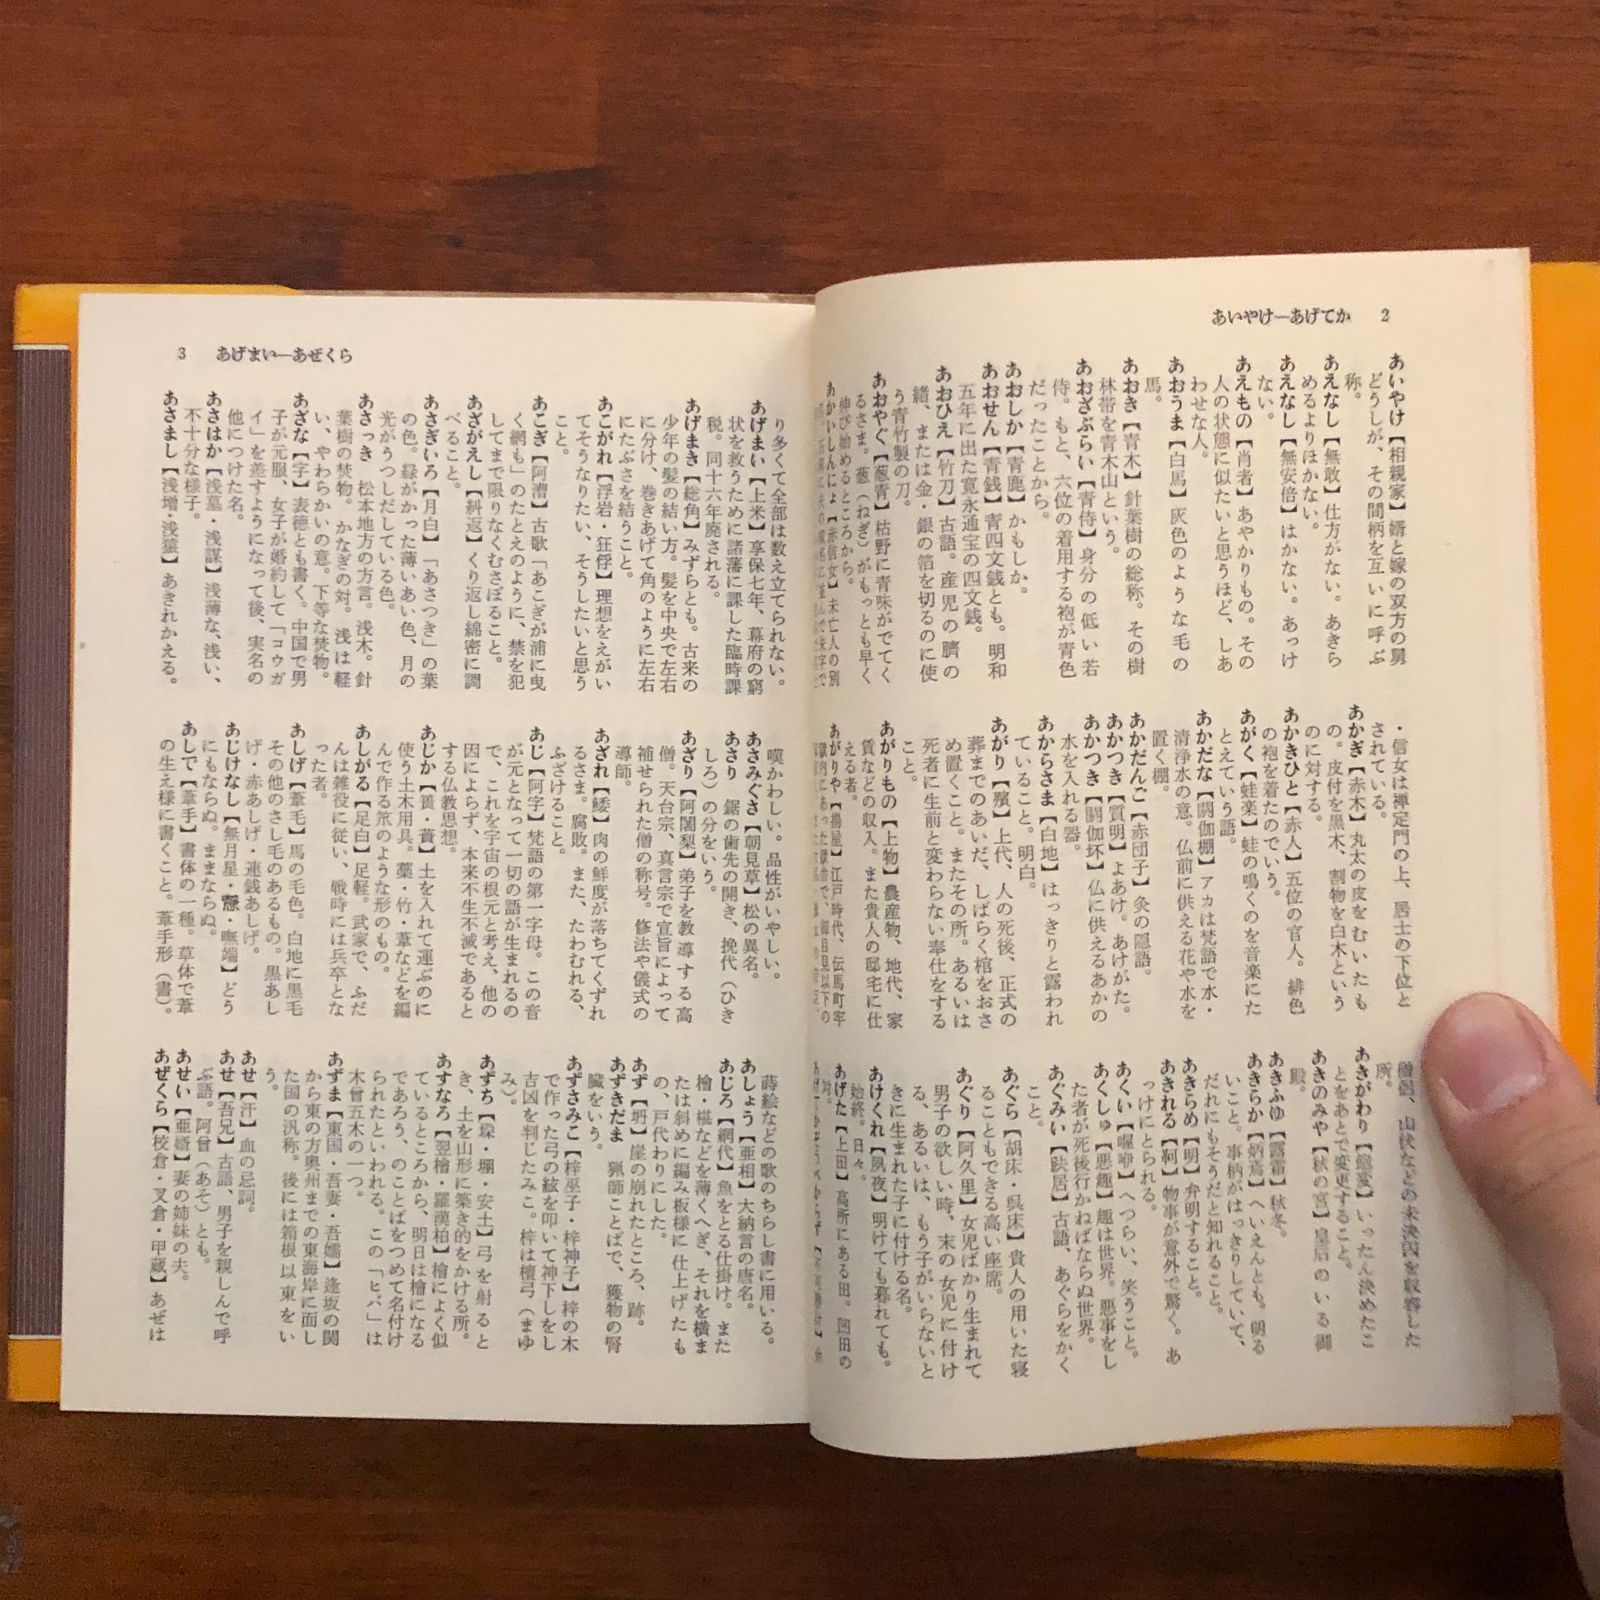 あいやけ―あげてか　2
あいやけ【相親家】婿と嫁の双方の舅
どうしが、その間柄を互いに呼ぶ
称。
あえなし【無敢】仕方がない。あきら
めるよりほかない。
あえなし【無安倍】はかない。あっけ
ない。
あえもの【肖者】あやかりもの。その
人の状態に似たいと思うほど、しあ
わせな人。
あおうま【白馬】灰色のような毛の
馬。
あおき【青木】針葉樹の総称。その樹
林帯を青木山という。
あおざぶらい【青侍】身分の低い若
侍。もと、六位の着用する袍が青色
だったことから。
あおしか【青鹿】かもしか。
あおせん【青銭】青四文銭とも。明和
五年に出た寛永通宝の四文銭。
あおひえ【竹刀】古語。産児の臍の
緒、または金・銀の箔を切るのに使
う青竹製の刀。
あおやぐ【葱青】枯野に青味がでてく
るさま。葱（ねぎ）がもっとも早く
伸び始めるところから。
あかいしんにょ【赤信女】未亡人の別
・信女は禅定門の上、居士の下位と
されている。
あかぎ【赤木】丸太の皮をむいたも
の。皮付を黒木、割物を白木という
のに対する。
あかきひと【赤人】五位の官人。緋色
の袍を着たのでいう。
あがく【蛙楽】蛙の鳴くのを音楽にた
とえていう語。
あかだな【閼伽棚】アカは梵語で水・
清浄水の意。仏前に供える花や水を
置く棚。
あかだんご【赤団子】灸の隠語。
あかつき【質明】よあけ。あけがた。
あかつき【閼伽坏】仏に供えるあかの
水を入れる器。
あからさま【白地】はっきりと露われ
ていること。明白。
あがり【殯】上代、人の死後、正式の
葬までのあいだ、しばらく棺をおさ
め置くこと。またその所。あるいは
死者に生前と変わらない奉仕をする
こと。
あがりもの【上物】農産物、地代、家
賃などの収入。また貴人の邸宅に仕
える者。
あがりや【揚屋】江戸時代、伝馬町牢
獄内にあった獄舎で、御目見以下の
僧侶、山伏などの未決囚を収容した
所。
あきがわり【㒃変】いったん決めたこ
とをあとで変更すること。
あきのみや【秋の宮】皇后のいる御
殿。
あきふゆ【露霜】秋冬。
あきらか【炳焉】へいえんとも。明る
いこと。事柄がはっきりしていて、
だれにもそうだと知れること。
あきらめ【明】弁明すること。
あきれる【䩞】物事が意外で驚く。あ
っけにとられる。
あくい【喔咿】へつらい、笑うこと。
あくしゅ【悪趣】趣は世界。悪事をし
た者が死後行かねばならぬ世界。
あぐみい【趺居】古語、あぐらをかく
こと。
あぐら【胡床・呉床】貴人の用いた寝
ることもできる高い座席。
あぐり【阿久里】女児ばかり生まれて
男子の欲しい時、末の女児に付け
る、あるいは、もう子がいらないと
きに生まれた子に付ける名。
あけくれ【夙夜】明けても暮れても。
始終。日々。
あげた【上田】高所にある田。凹田の
対。
3　あげまい―あぜくら
り多くて全部は数え立てられない。
あげまい【上米】享保七年、幕府の窮
状を救うために諸藩に課した臨時課
税。同十六年廃される。
あげまき【総角】みずらとも。古来の
少年の髪の結い方。髪を中央で左右
に分け、巻きあげて角のように左右
にたぶさを結うこと。
あこがれ【浮岩・狂俘】理想をえがい
てそうなりたい、そうしたいと思う
こと。
あこぎ【阿漕】古歌「あこぎが浦に曳
く網も」のたとえのように、禁を犯
してまで限りなくむさぼること。
あざがえし【糾返】くり返し綿密に調
べること。
あさぎいろ【月白】「あさつき」の葉
の色。緑がかった薄いあい色、月の
光がうつしだしている色。
あさっき　松本地方の方言。浅木。針
葉樹の焚物。かなぎの対。浅は軽
い、やわらかいの意。下等な焚物。
あざな【字】表徳とも書く。中国で男
子が元服、女子が婚約して「コウガ
イ」を差すようになって後、実名の
他につけた名。
あさはか【浅墓・浅謀】浅薄な、浅い、
不十分な様子。
あさまし【浅増・浅猿】あきれかえる。
嘆かわしい。品性がいやしい。
あさみぐさ【朝見草】松の異名。
あさり　鋸の歯先の開き、挽代（ひき
しろ）の分をいう。
あざり【阿闍梨】弟子を教導する高
僧。天台宗、真言宗で宣旨によって
補せられた僧の称号。修法や儀式の
導師。
あざれ【鯘】肉の鮮度が落ちてくずれ
るさま。腐敗。また、たわむれる、
ふざけること。
あじ【阿字】梵語の第一字母。この音
が元となって一切の語が生まれるの
で、これを宇宙の根元と考え、他の
因によらず、本来不生不滅であると
する仏教思想。
あじか【簣・蕢】土を入れて運ぶのに
使う土木用具。藁・竹・葦などを編
んで作る笊のような形のもの。
あしがる【足白】足軽。武家で、ふだ
んは雑役に従い、戦時には兵卒とな
った者。
あしげ【葦毛】馬の毛色。白地に黒毛
その他のさし毛のあるもの。黒あし
げ・赤あしげ・連銭あしげ。
あじけなし【無月星・憖・嘸端】どう
にもならぬ。ままならぬ。
あしで【葦手】書体の一種。草体で葦
の生え様に書くこと。葦手形（書）。
蒔絵などの歌のちらし書に用いる。
あしょう【亜相】大納言の唐名。
あじろ【網代】魚をとる仕掛け。また
檜・椹などを薄くへぎ、それを横ま
たは斜めに編み板様に仕上げたも
の、戸代わりにした。
あず【坍】崖の崩れたところ、跡。
あずきだま　猟師ことばで、獲物の腎
臓をいう。
あずさみこ【梓巫子・梓神子】梓の木
で作った弓の絃を叩いて神下しをし
吉凶を判じたみこ。梓は檀弓（まゆ
み）。
あずち【垜・堋・安土】弓を射ると
き、土を山形に築き的をかける所。
あすなろ【翌檜・羅漢柏】檜によく似
ているところから、明日は檜になる
であろう、のことばをつめて名付け
られたといわれる。この「ヒバ」は
木曾五木の一つ。
あずま【東国・吾妻・吾嬬】逢坂の関
から東の方奥州までの東海岸に面し
た国の汎称。後には箱根以東をい
う。
あせ【汗】血の忌詞。
あせ【吾兄】古語、男子を親しんで呼
ぶ語。阿曾（あそ）とも。
あせい【亜壻】妻の姉妹の夫。
あぜくら【校倉・叉倉・甲蔵】あぜは